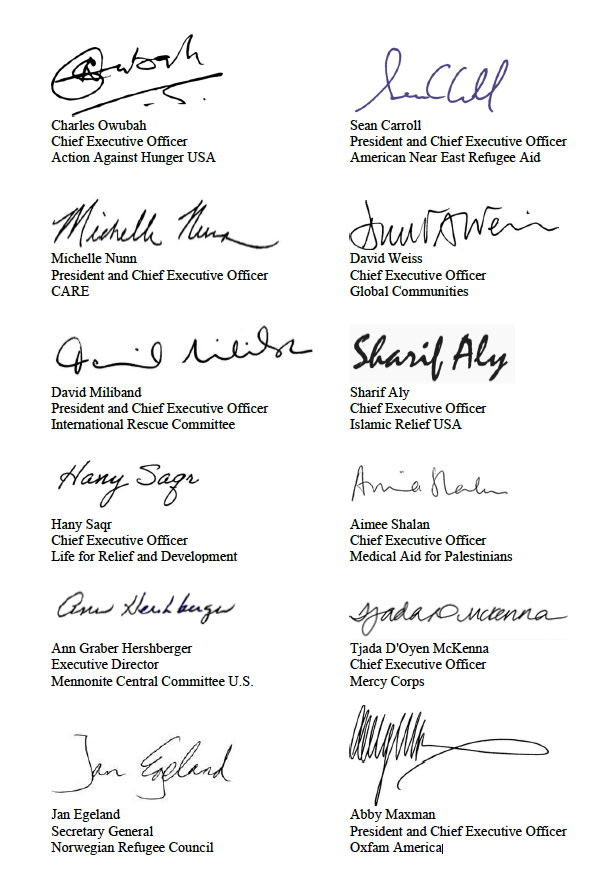 Owubah
Charles Owubah
Chief Executive Officer
Action Against Hunger USA
Sean Carroll
President and Chief Executive Officer
American Near East Refugee Aid
Michelle Nunn
Michelle Nunn
President and Chief Executive Officer
CARE
David Weiss
Chief Executive Officer
Global Communities
David Miliband
David Miliband
President and Chief Executive Officer
International Rescue Committee
Sharif Aly
Sharif Aly
Chief Executive Officer
Islamic Relief USA
Hany Saqr
Hany Saqr
Chief Executive Officer
Life for Relief and Development
Aimee Shalan
Chief Executive Officer
Medical Aid for Palestinians
Ann Hershberger
Ann Graber Hershberger
Executive Director
Mennonite Central Committee U.S.
Tjada D McKenna
Tjada D'Oyen McKenna
Chief Executive Officer
Mercy Corps
Jan Egeland
Jan Egeland
Secretary General
Norwegian Refugee Council
Abby Maxman
President and Chief Executive Officer
Oxfam America